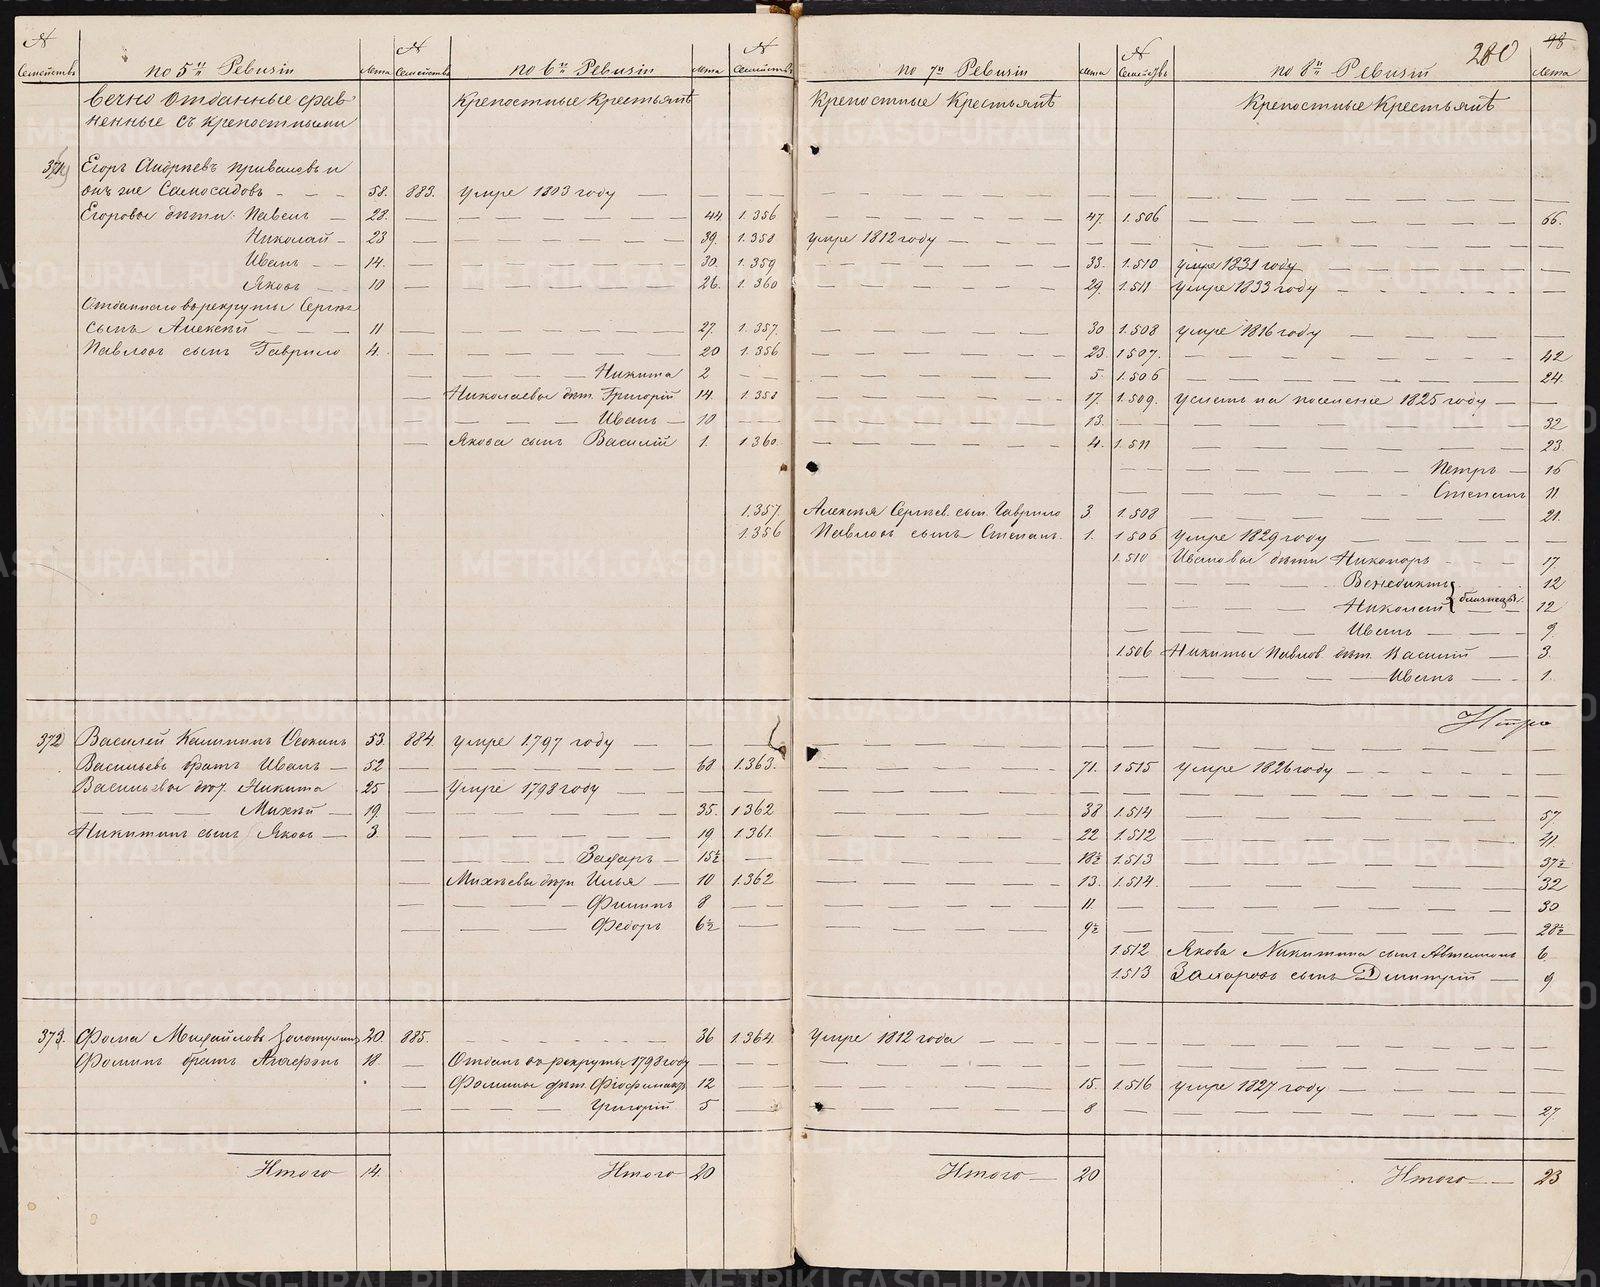 280 98
№ Семейства по 5й Ревизіи Лета № Семейства по 6й Ревизіи Лета № Семейства по 7й Ревизіи Лета № Семейства по 8й Ревизіи Лета
вечно отданные срав Крепостные Крестьянѣ Крепостные Крестьянѣ Крепостные Крестьянѣ
ненные съ крепостными
Егоръ Андрѣевъ Приваловъ и
онъ же Самосадовъ 58. 883. умре 1803 году
Егоровы дѣти: Павелъ 28. 44 1.356 47. 1.506 66.
Николай 23 39. 1.358 умре 1812 году
Иванъ 14. 30. 1.359 33. 1.510 умре 1831 году
Яковъ 10 26. 1.360 29. 1.511 умре 1833 году
Отданнаго въ рекруты Сергѣя
сынъ Алексѣй 11 27. 1.357. 30 1.508 умре 1816 году
Павловъ сынъ Гаврило 4. 20 1.356 23. 1507. 42
Никита 2 5. 1.506 24
Николаевы дѣт. Григорій 14. 1.358 17. 1.509. Усланъ на поселеніе 1825 году
Иванъ 10 13. 32
Якова сынъ Василій 1. 1.360. 4. 1.511 23.
Петръ 16
Степанъ 11
1.357 Алексѣя Сергѣев. сын. Гаврило 3 1.508 21.
1.356 Павловъ сынъ Степанъ. 1. 1506 умре 1829 году
1.510 Ивановы дѣти Никоноръ 17.
Венедиктъ 12
Николай близнецы. 12
Иванъ 9.
1.506 Никиты Павлов. дѣт. Василій 3.
Иванъ 1.
372 Василей Калининъ Осокинъ 53. 884. умре 1797 году
Васильевъ братъ Иванъ 52 68 1.363. 71. 1.515 умре 1826 году
Васильевы дѣт. Никита 25 Умре 1798 году
Михѣй 19. 35. 1.362 38 1.514 57.
Никитинъ сынъ Яковъ 3. 19 1.361. 22 1.512 41.
Захаръ 15½ 18½ 1.513 37½
Михѣевы дѣти Илья 10 1.362 13. 1.514. 32
Филипъ 8 11 30
Федоръ 6½ 9½ 28½
1.512 Якова Никитина сынъ Автамонъ 6.
1.513 Захаровъ сынъ Дмитрій 9
373. Фома Михайловъ Золотухинъ 20. 885. 36 1.364 Умре 1812 года
Фоминъ братъ Агафонъ 18. Отданъ въ рекруты 1798 году
Фомины дѣт. Фіофилактъ 12 15. 1.516 умре 1827 году
Григорій 5 8 27
Итого 14. Итого 20 Итого 20 Итого 23
METRIKI.GASO-URAL.RU